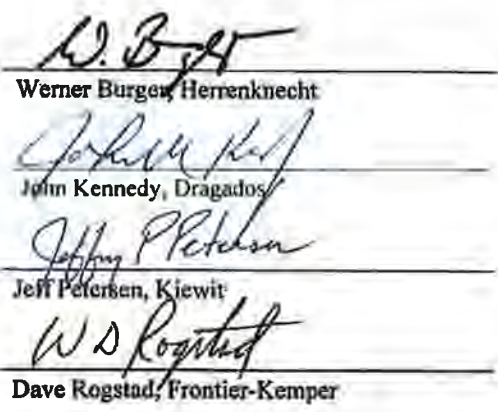 W. Burger
Werner Burger, Herrenknecht
John M Ked
John Kennedy, Dragados
Jeffry P Petersen
Jeff Petersen, Kiewit
W D Rogstad
Dave Rogstad, Frontier-Kemper